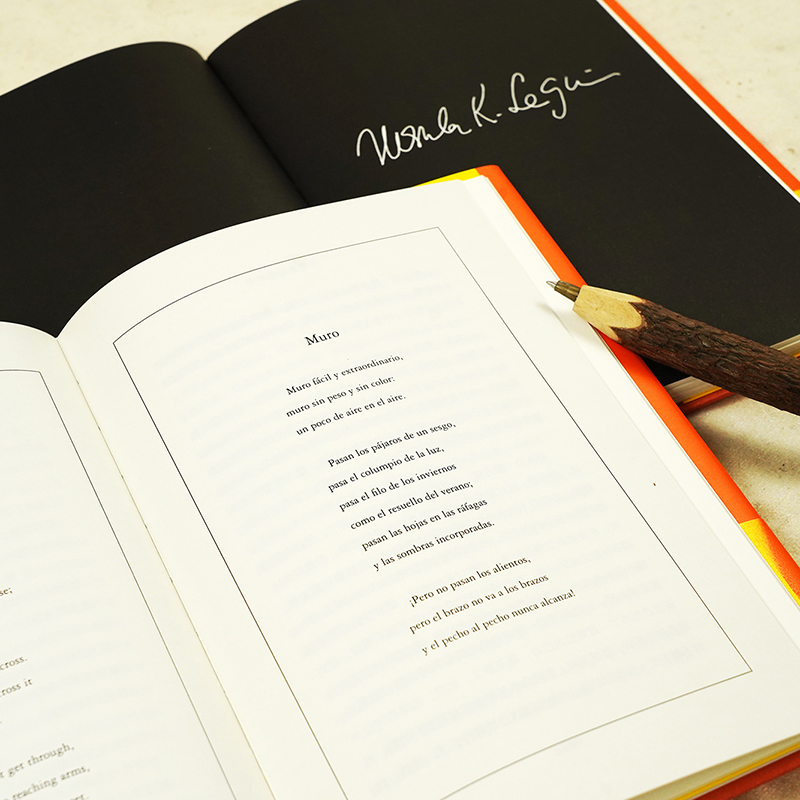 Ursula K. Le Guin
Muro
Muro fácil y extraordinario,
muro sin peso y sin color:
un poco de aire en el aire.
Pasan los pájaros de un sesgo,
pasa el columpio de la luz,
pasa el filo de los inviernos
como el resuello del verano;
pasan las hojas en las ráfagas
y las sombras incorporadas.
¡Pero no pasan los alientos,
pero el brazo no va a los brazos
y el pecho al pecho nunca alcanza!
cross.
cross it
get through,
reaching arms,